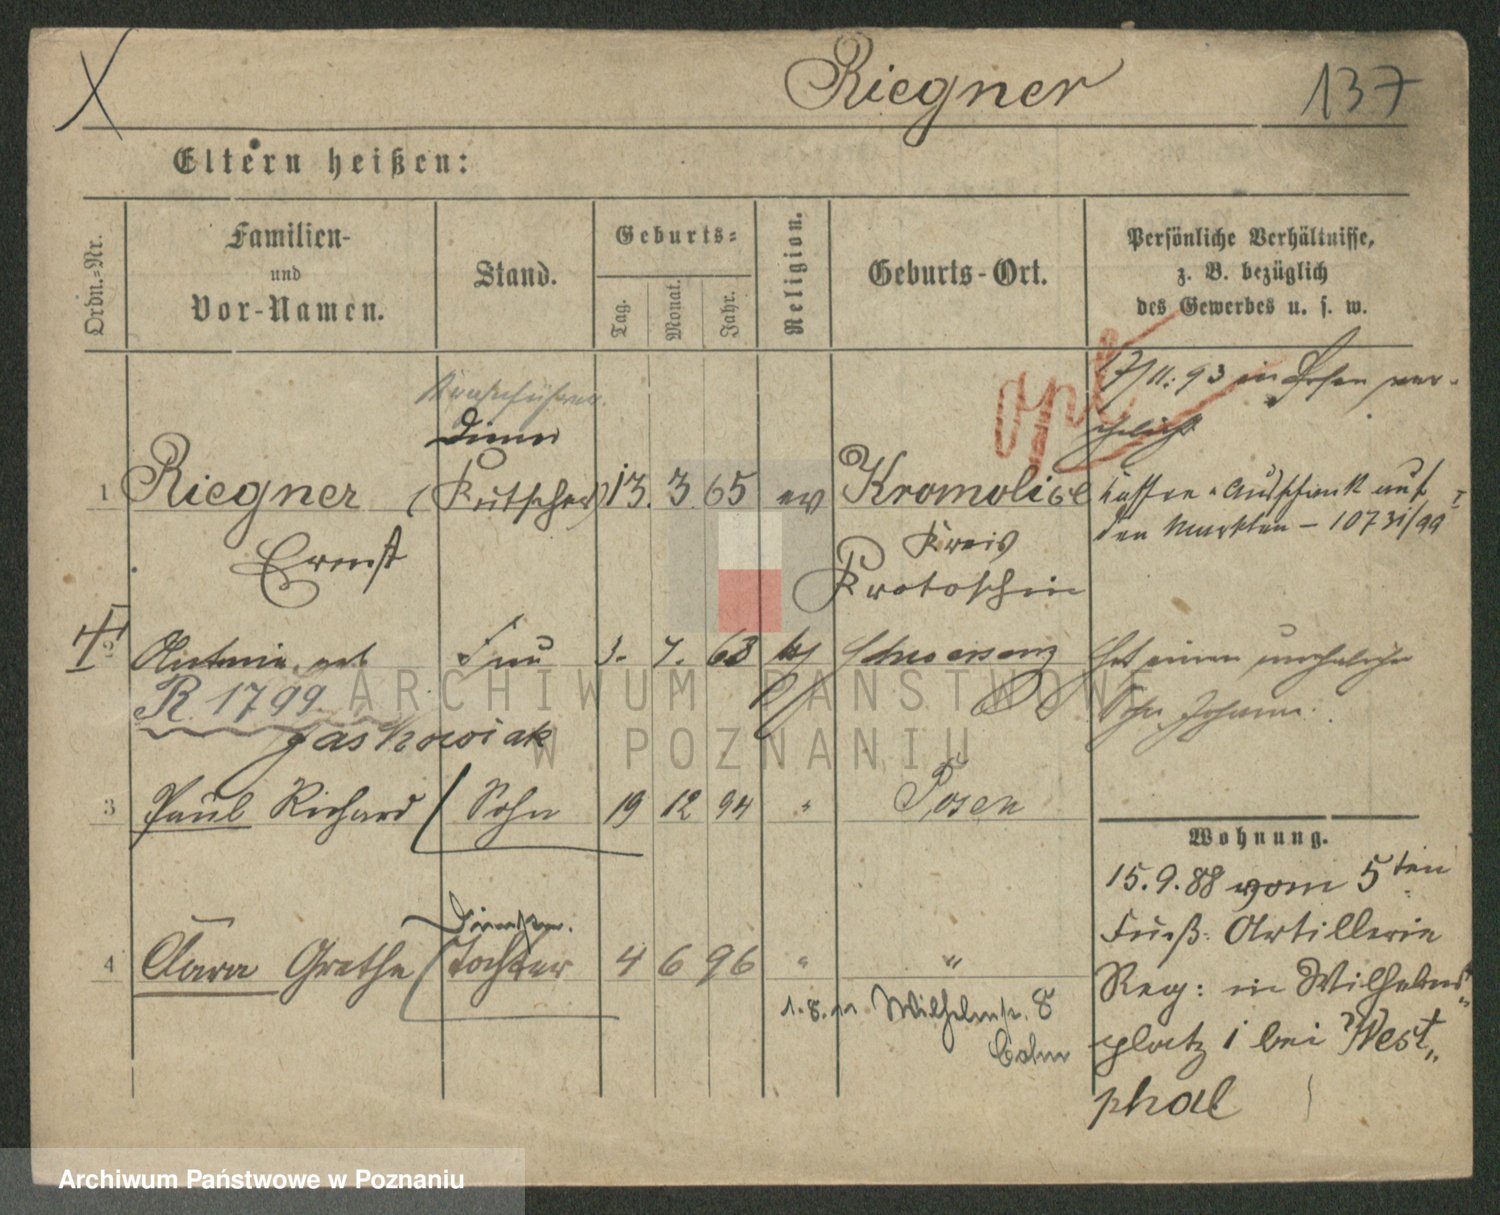 Riegner 137
Eltern heißen:
Ordn.=Nr.
Familien-
und
Vor-Namen.
Stand.
Geburts=
Tag.
Monat.
Jahr.
Religion.
Geburts-Ort.
Persönliche Verhältnisse,
z. B. bezüglich
des Gewerbes u. s. w.
7/11. 93 in Posen ver-
ehelicht
Diener
1 Riegner (Kutscher) 13. 3. 65 ev Kromolice
Ernst
Kreis
Krotoschin
Kaffee-Ausschank auf
den Markten - 1073I/99
opl
2 Antonie geb Frau 3. 7. 68 kt Schwersenz
R 1799
Jaskowiak
Hat einen uneheliche
Sohn Johann.
3 Paul Richard / Sohn 19 12 94 " Posen
4 Clara Grethe (Tochter 4 6 96 " "
Wilhelmstr. 8
Wohnung.
15.9.88 vom 5ten
Fuß. Artillerie
Reg: in Wilhelms"
platz 1 bei West"
phal
ARCHIWUM PAŃSTWOWE
W POZNANIU
Archiwum Państwowe w Poznaniu